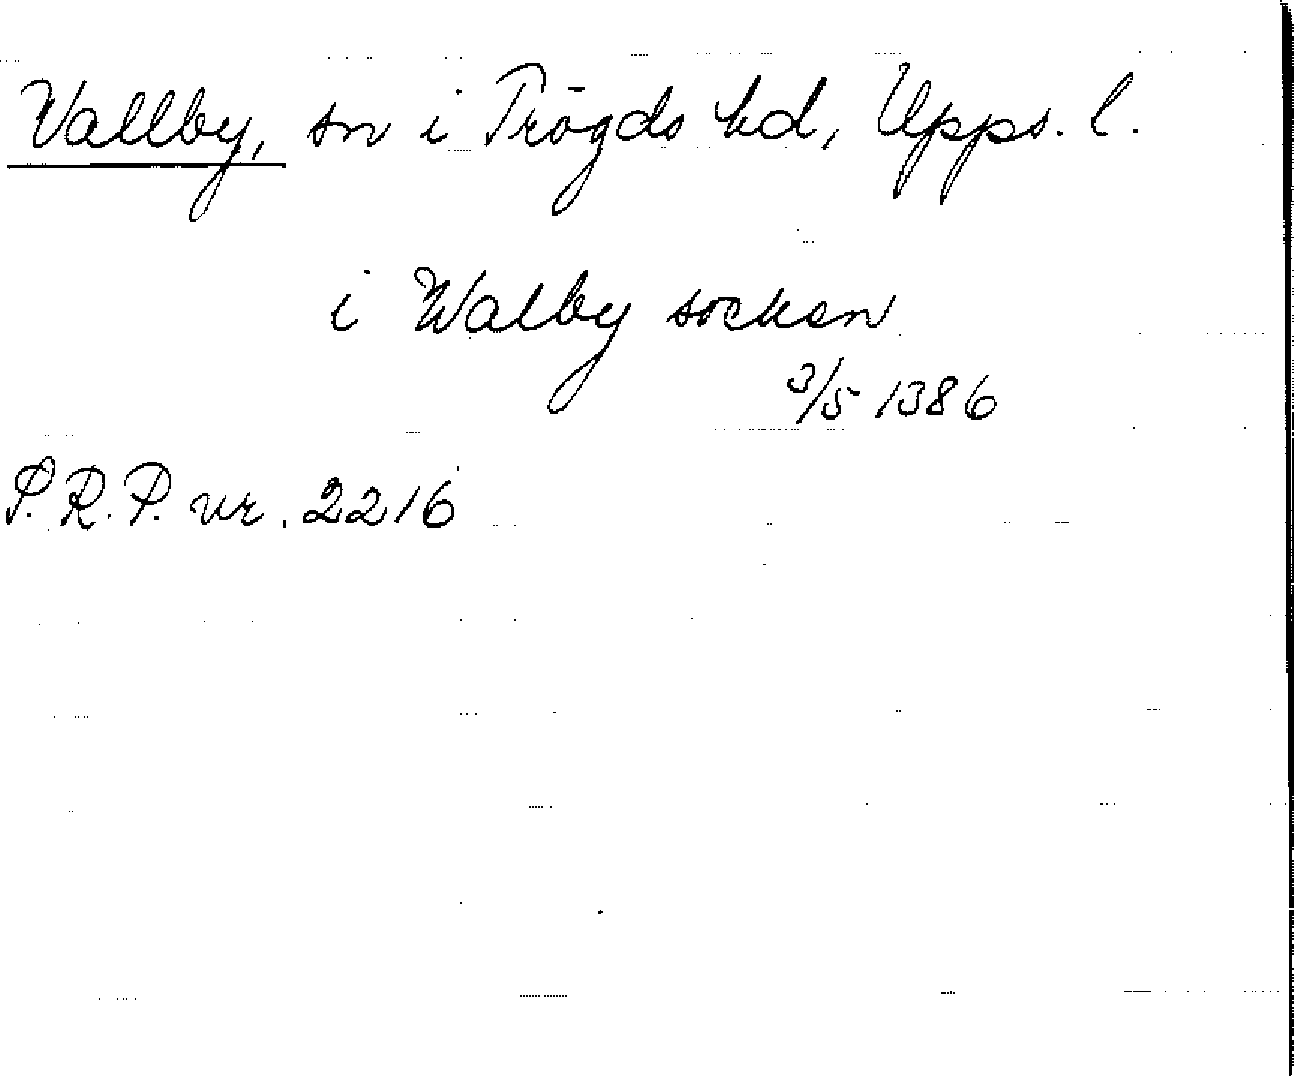 Vallby, sn i Trögds hd, Upps. l.
i Walby socken
3/5 1386
P.R.P. nr. 2216